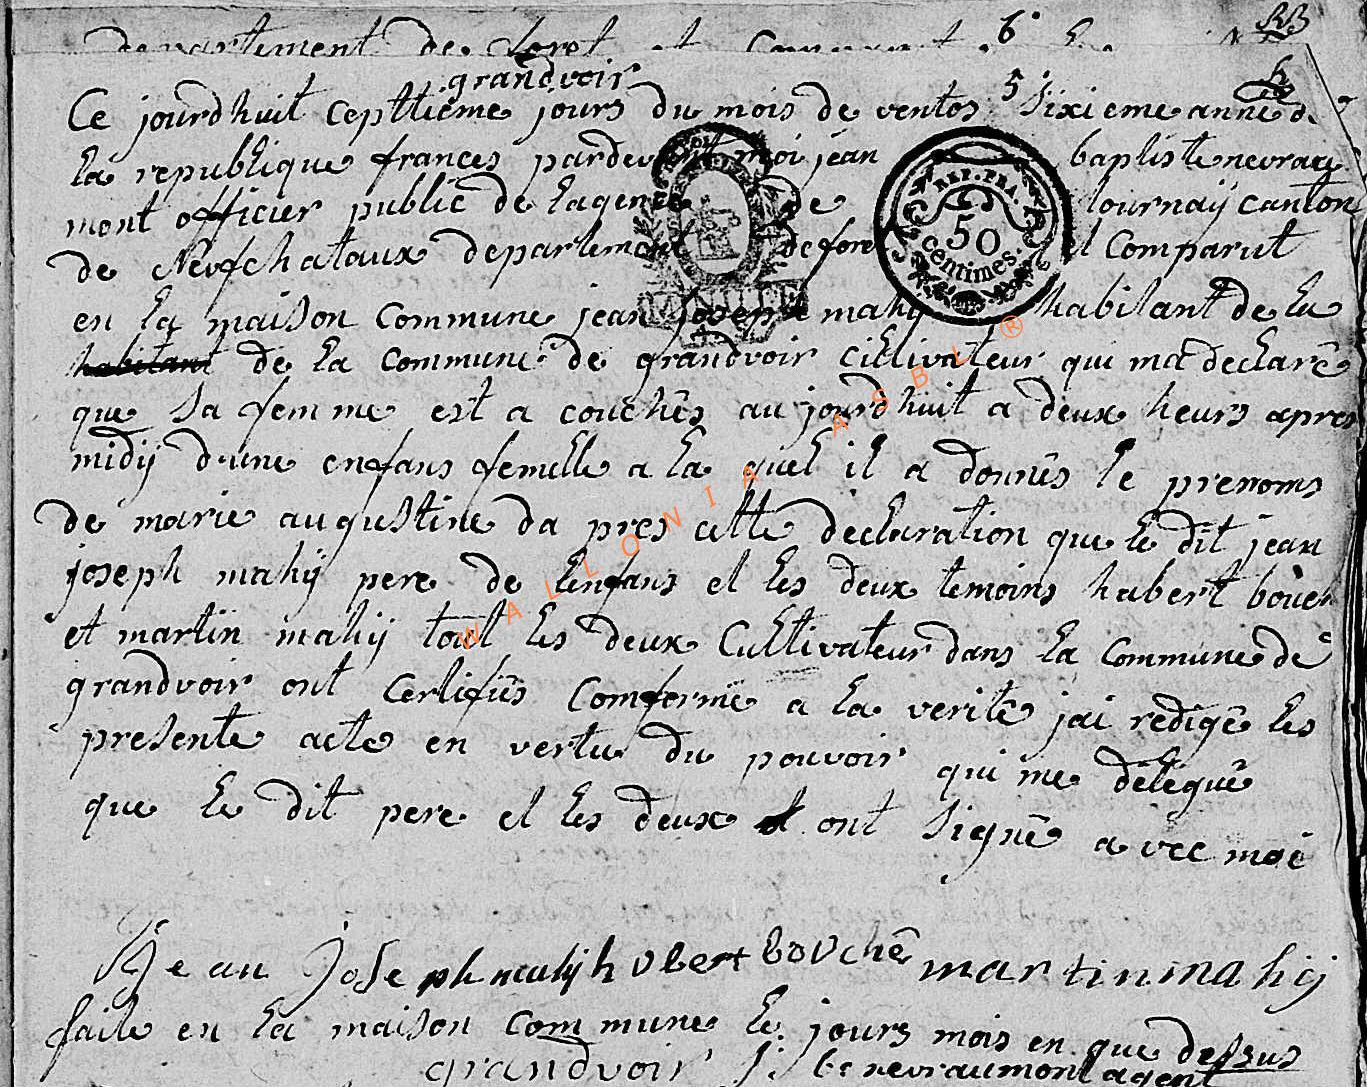 departement de foret et 6.
grandvoir 5
Ce jourdhuit cepttieme jours du mois de ventos sixieme anné de
la republique frances pardevent moi jean baptiste nevrau
mont officier public de lagence de tournaÿ canton
de Neufchataux departement de foret et Comparut
en la maison Commune jean joseph mahÿ habitant de la
habitant de la Commune de grandvoir cultivateur qui ma declarê
que sa femme est a couchês au jourdhuit a deux heurs apres
midÿ dune enfans femelle a la quel il a donnês le prenoms
de marie augustine da pres cette declaration que le dit jean
joseph mahÿ pere de lenfans et les deux temoins hubert bouche
et martin mahÿ tout les deux Cultivateur dans la Commune de
grandvoir ont Certifiês Comforme a la veritê jai redigê les
presente acte en vertu du pouvoir qui me déleguê
que le dit pere et les deux ont signê avec moi
Jean Joseph mahÿ hubert bouchê martin mahÿ
faite en la maison commune le jours mois en que dessus
grandvoir J: b: nevraumont agent
REP. FRA.
50
centimes.
WALLONIA ASBL ®